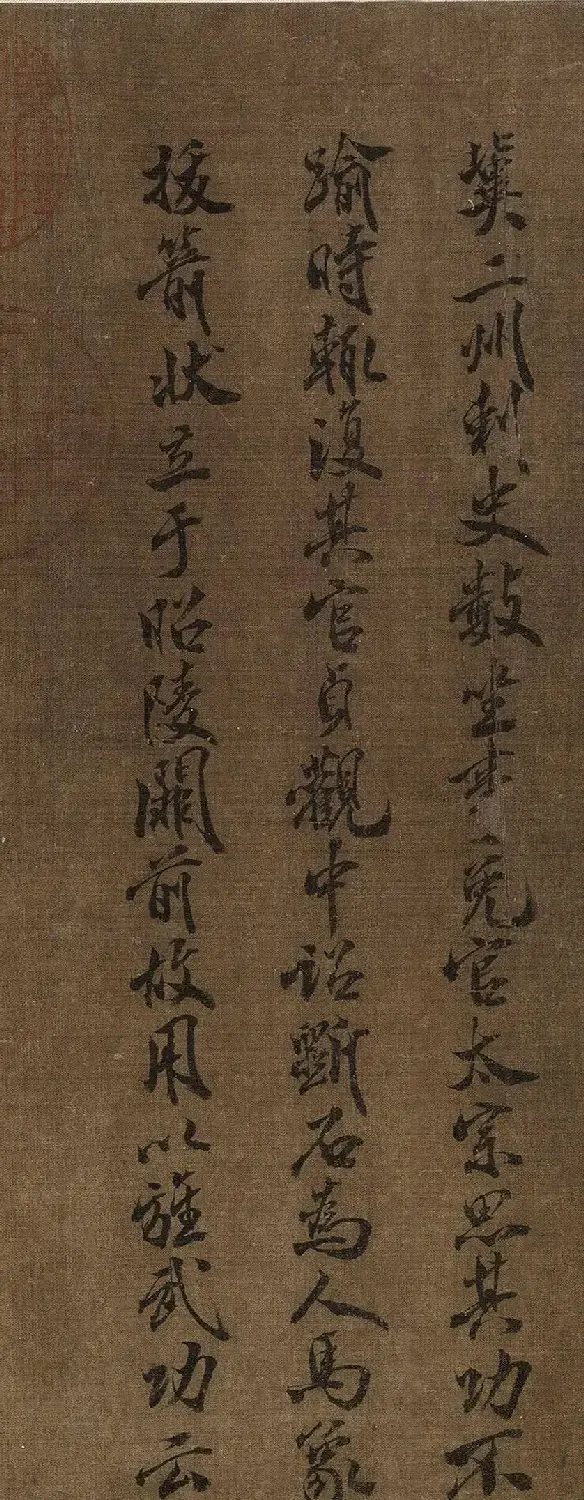 冀二州刺史數坐事免官太宗思其功不
踰時輒復其官貞觀中詔斲石為人馬象
拔箭狀立于昭陵闕前故用以旌武功云